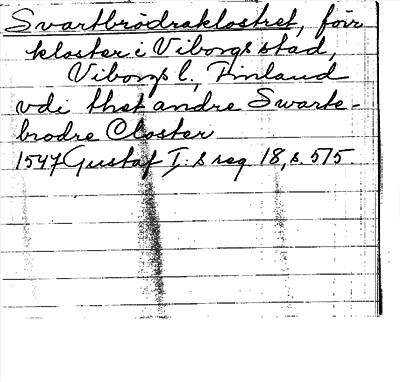 Svartbrödraklostret, förr
kloster i Viborgs stad,
Viborgs l., Finland
vdi thet andre Swarte-
brodre Closter
1547 Gustaf I:s reg 18, s. 575.